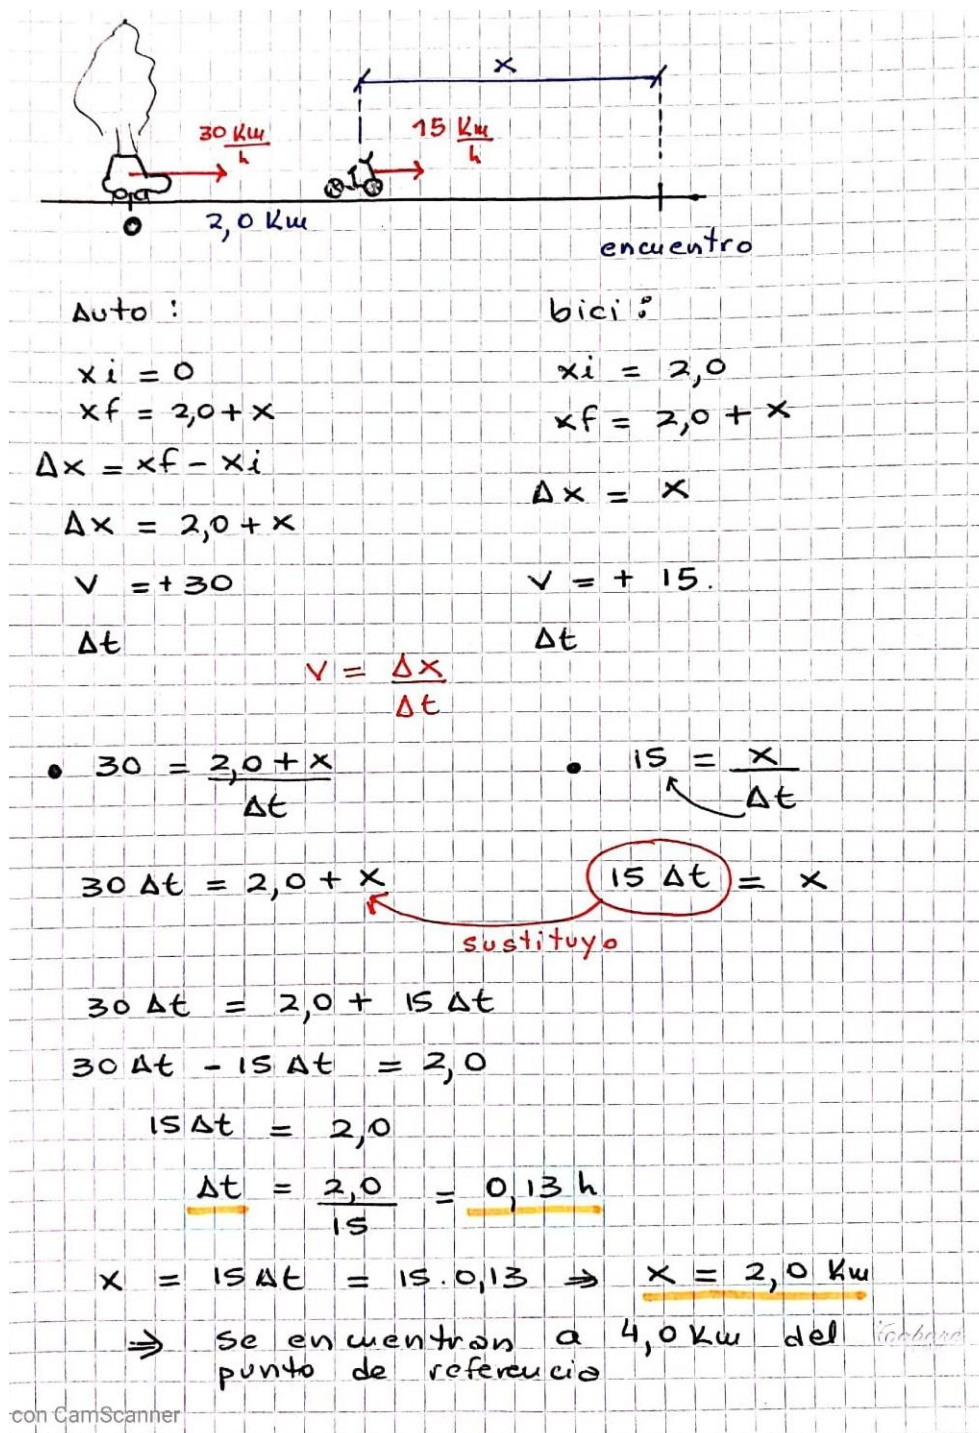 x
30 Km/h
15 Km/h
0
2,0 Km
encuentro
Auto :
bici :
xi = 0
xi = 2,0
xf = 2,0 + x
xf = 2,0 + x
Δx = xf - xi
Δx = x
Δx = 2,0 + x
v = + 30
v = + 15.
Δt
Δt
v = Δx/Δt
• 30 = 2,0 + x/Δt
• 15 = x/Δt
30 Δt = 2,0 + x
15 Δt = x
sustituyo
30 Δt = 2,0 + 15 Δt
30 Δt - 15 Δt = 2,0
15 Δt = 2,0
Δt = 2,0/15 = 0,13 h
x = 15 Δt = 15 . 0,13 ⇒ x = 2,0 Km
⇒ se encuentran a 4,0 Km del
punto de referencia
con CamScanner